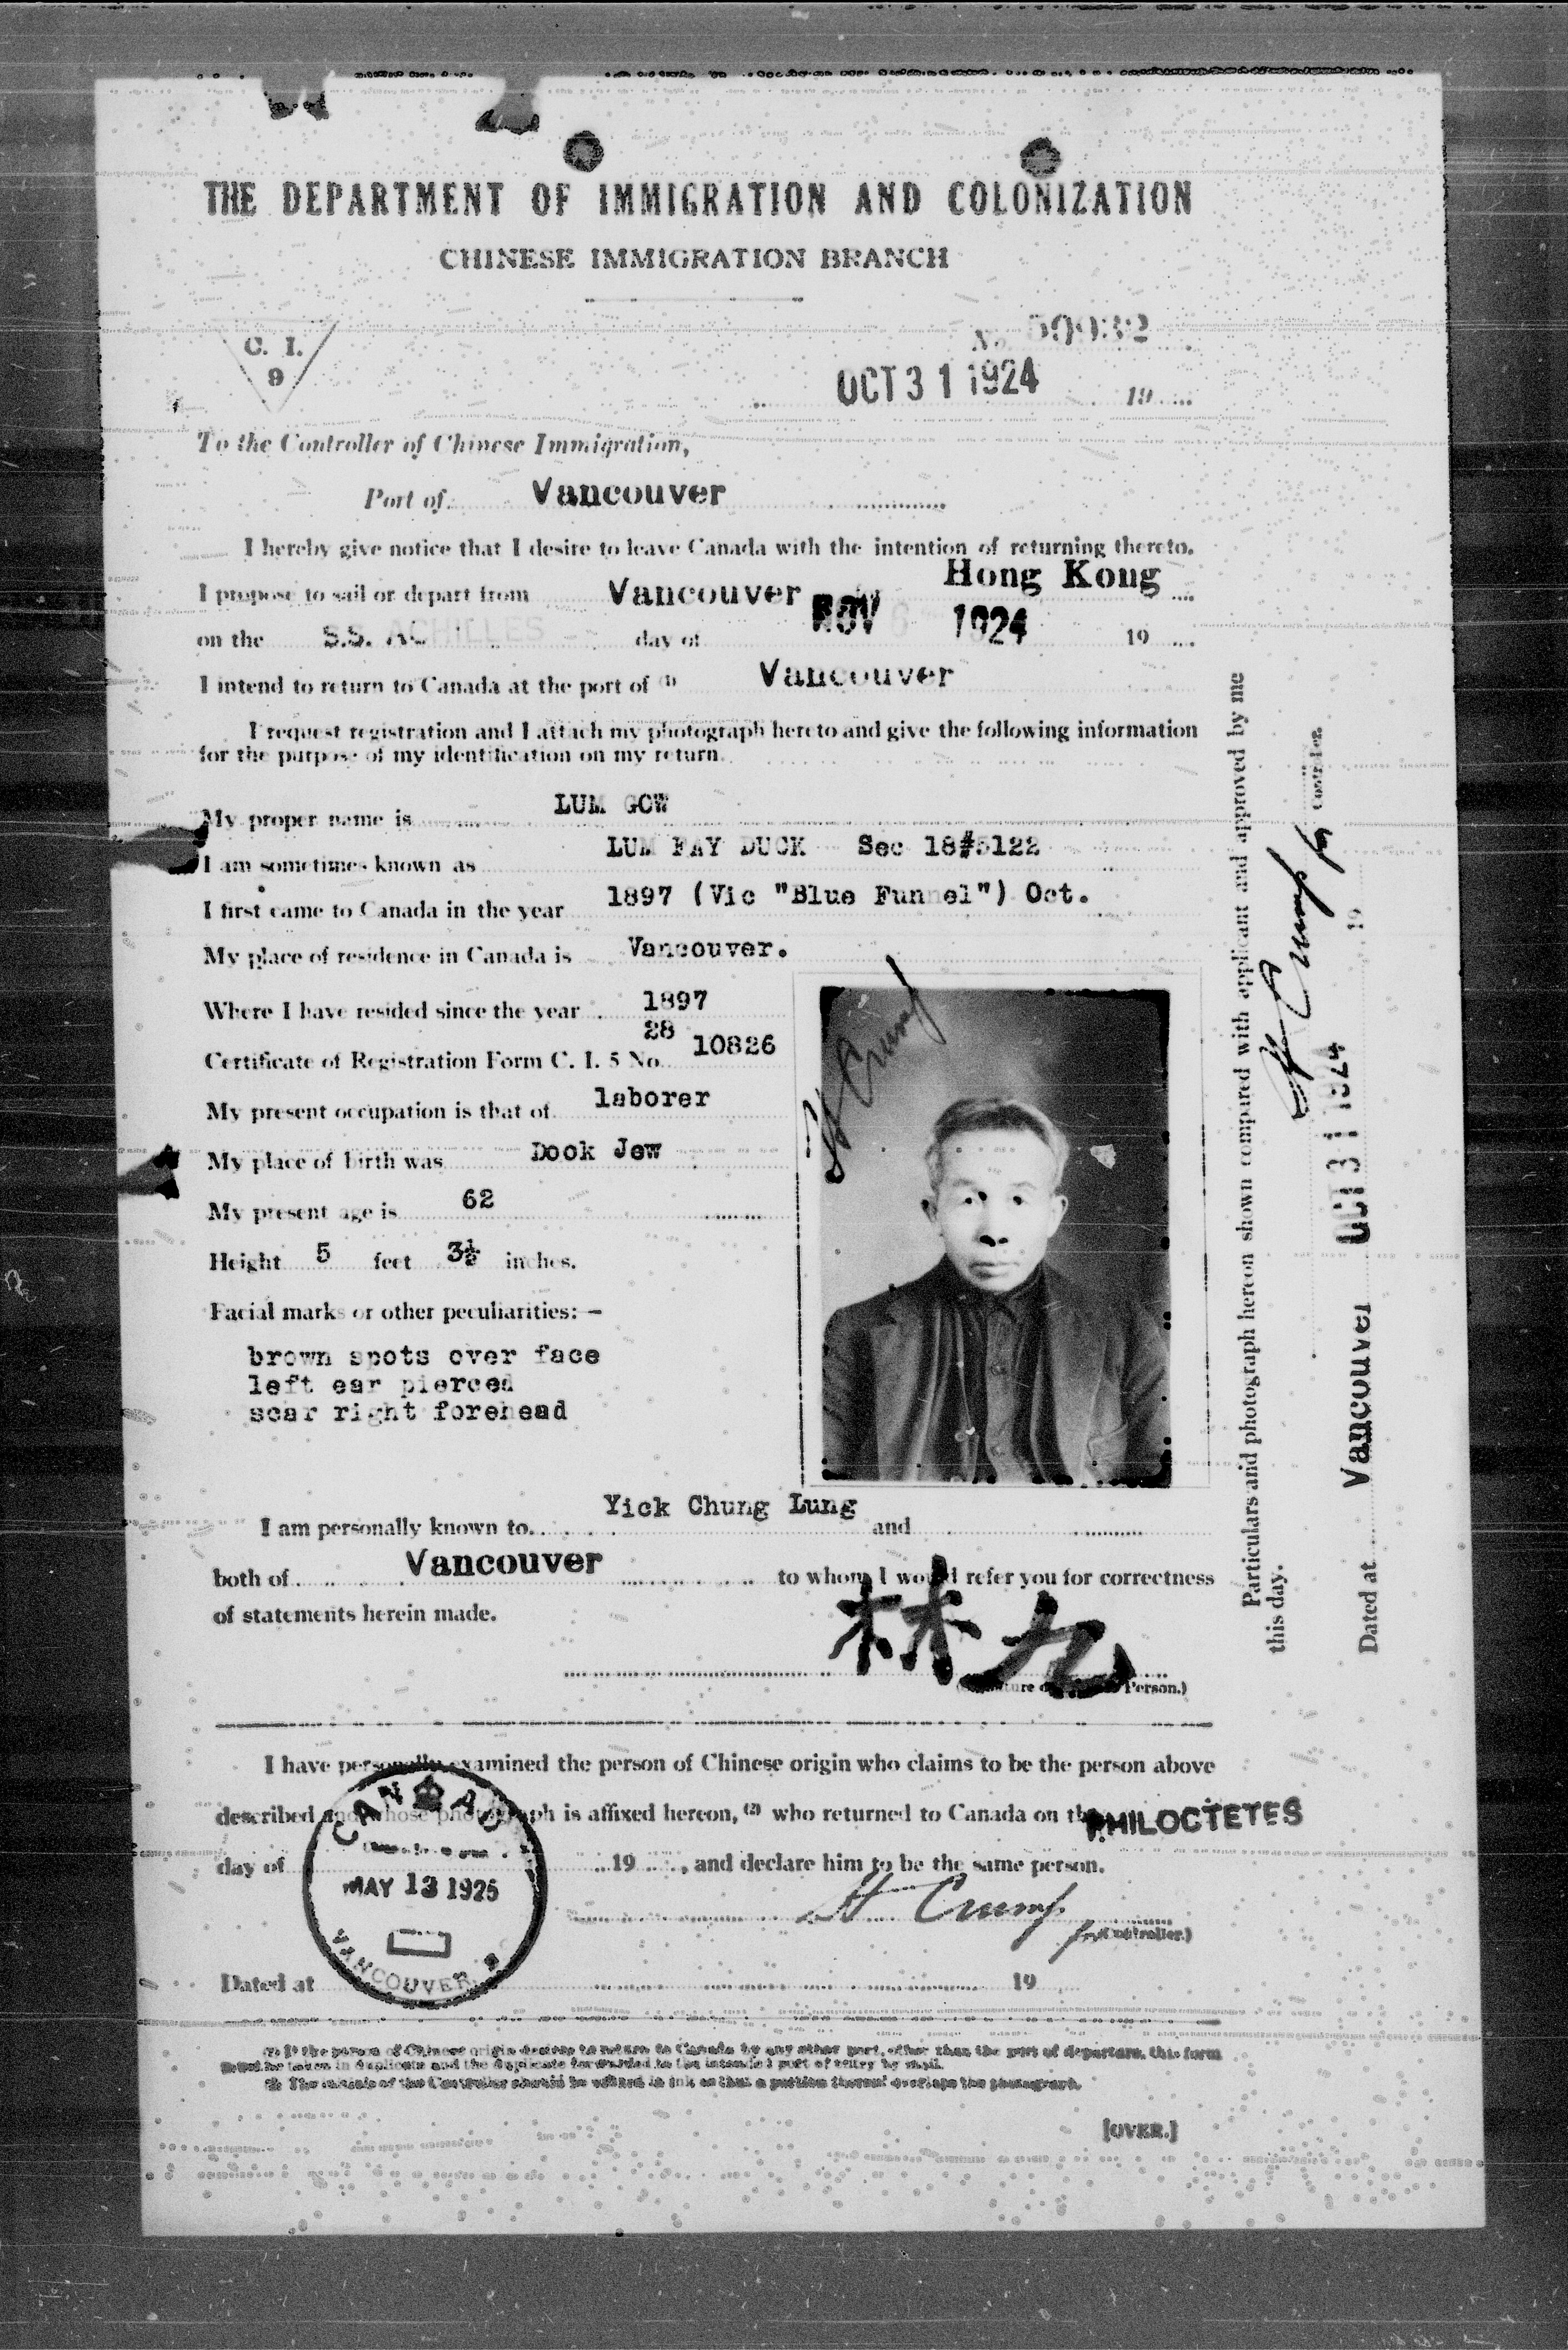 THE DEPARTMENT OF IMMIGRATION AND COLONIZATION
CHINESE IMMIGRATION BRANCH
C. I.
9
No. 50932
OCT 31 1924 19
To the Controller of Chinese Immigration,
Port of Vancouver
I hereby give notice that I desire to leave Canada with the intention of returning thereto.
Hong Kong
I propose to sail or depart from Vancouver
on the S.S. ACHILLES day of NOV 1924 19
I intend to return to Canada at the port of (1) Vancouver
I request registration and I attach my photograph hereto and give the following information
for the purpose of my identification on my return.
My proper name is LUM GOW
I am sometimes known as LUM FAY DUCK Sec 18#5122
I first came to Canada in the year 1897 (Vic "Blue Funnel") Oct.
My place of residence in Canada is Vancouver.
Where I have resided since the year 1897
28
Certificate of Registration Form C. I. 5 No. 10826
My present occupation is that of laborer
My place of birth was Dook Jew
My present age is 62
Height 5 feet 3½ inches.
Facial marks or other peculiarities: —
brown spots over face
left ear pierced
scar right forehead
H Crump
I am personally known to Yick Chung Lung and
both of Vancouver to whom I would refer you for correctness
of statements herein made.
林九
(Signature of Person.)
I have personally examined the person of Chinese origin who claims to be the person above
described and whose photograph is affixed hereon, (2) who returned to Canada on the PHILOCTETES
day of 19 , and declare him to be the same person.
CANADA
MAY 13 1925
VANCOUVER
H Crump
for Controller.)
Dated at 19
(1) If the person of Chinese origin desires to return to Canada by any other port, other than the port of departure, this form
must be taken in duplicate and the duplicate forwarded to the intended port of entry by mail.
(2) The initials of the Controller should be affixed in ink so that a portion thereof overlaps the photograph.
[OVER.]
Particulars and photograph hereon shown compared with applicant and approved by me
this day.
H Crump for Controller.
Dated at Vancouver OCT 31 1924 19